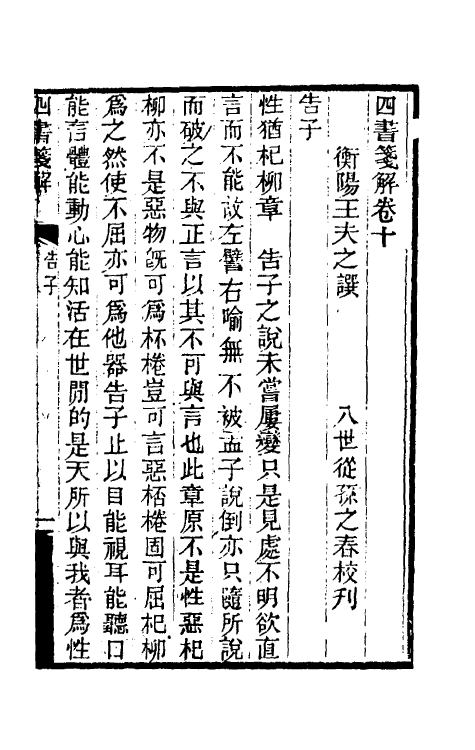 四書箋解卷十
衡陽王夫之譔　八世從孫之春校刊
告子
性猶杞柳章　告子之說未嘗屢變只是見處不明欲直
言而不能故左譬右喻無不被孟子說倒亦只隨所說
而破之不與正言以其不可與言也此章原不是性惡杞
柳亦不是惡物旣可爲杯棬豈可言惡桮棬固可屈杞柳
爲之然使不屈亦可爲他器告子止以目能視耳能聽口
能言體能動心能知活在世閒的是天所以與我者爲性
四書箋解
告子